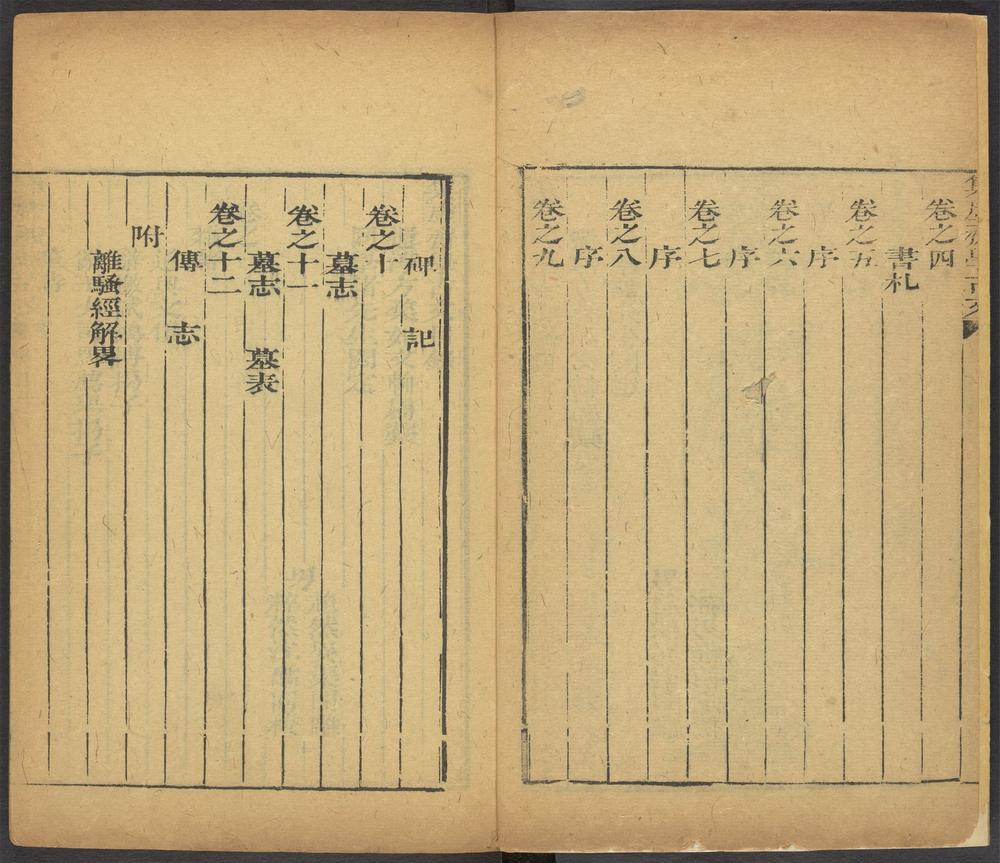 卷之四
書札
卷之五
序
卷之六
序
卷之七
序
卷之八
序
卷之九
碑 記
卷之十
墓志
卷之十一
墓志 墓表
卷之十二
傳 志
附
離騷經解畧